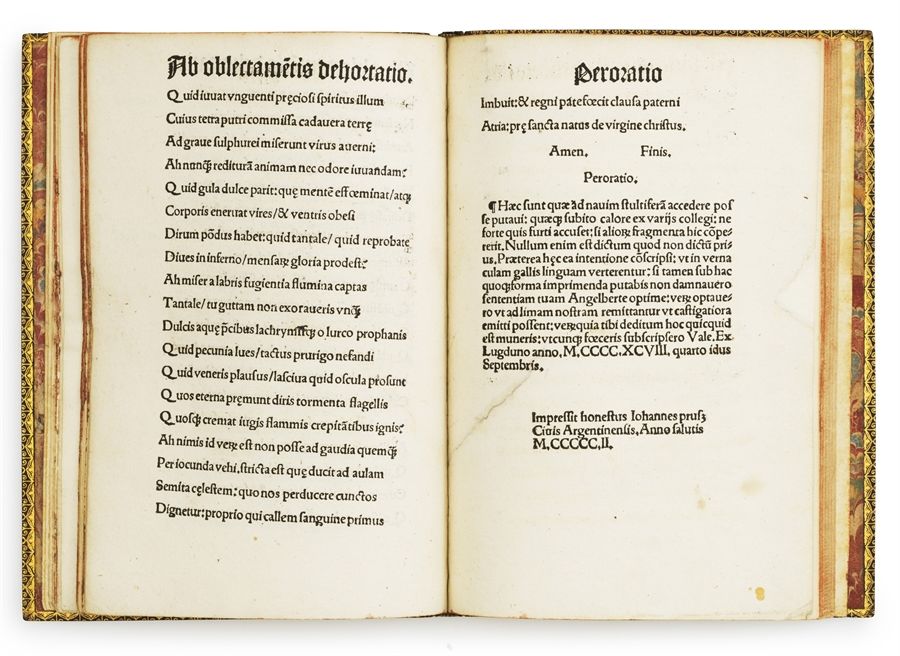 Ab oblectamētis dehortatio.
Quid iuuat vnguenti pręciosi spiritus illum
Cuius tetra putri commissa cadauera terrę
Ad graue sulphurei miserunt virus auerni:
Ah nunꝙ̄ rediturā animam nec odore iuuandam?
Quid gula dulce parit: quę mentē effœminat/atqꝫ
Corporis eneruat vires/& ventris obesi
Dirum põdus habet: quid tantale/ quid reprobatę
Diues in inferno/mensarꝝ gloria prodest:
Ah miser a labris fugientia flumina captas
Tantale/tu guttam non exoraueris vnꝙ̄
Dulcis aquę p̄cibus lachrymisqꝫ o lurco prophanis
Quid pecunia lues/tactus prurigo nefandi
Quid veneris plausus/lasciua quid oscula prosunt
Quos eterna pręmunt diris tormenta flagellis
Quosqꝫ cremat iugis flammis crepitātibus ignis:
Ah nimis id verꝝ est non posse ad gaudia quemqꝫ
Per iocunda vehi.stricta est quę ducit ad aulam
Semita cęlestem: quo nos perducere cunctos
Dignetur:proprio qui callem sanguine primus
Peroratio
Imbuit:& regni patefœcit clausa paterni
Atria:prę sancta natus de virgine christus.
Amen. Finis.
Peroratio.
¶ Hæc sunt quæ ad nauim stultiferā accedere pos
se putaui: quæqꝫ subito calore ex varijs collegi: ne
forte quis furti accuset: si aliorꝝ fragmenta hic cōpe-
rerit. Nullum enim est dictum quod non dictū pri-
us. Præterea hęc ea intentione cōscripsi: vt in verna
culam gallis linguam verterentur: si tamen sub hac
quoqꝫ forma imprimenda putabis non damnauero
sententiam tuam Angelberte optime: verꝝ optaue-
ro vt ad limam nostram remittantur vt castigatiora
emitti possent: verꝝ quia tibi deditum hoc quicquid
est muneris: vtcunqꝫ fœceris subscripsero Vale. Ex
Lugduno anno. M.CCCC.XCVIII. quarto idus
Septembris.
Impressit honestus Iohannes prusꝫ
Ciuis Argentinensis. Anno salutis
M.CCCCC.II.